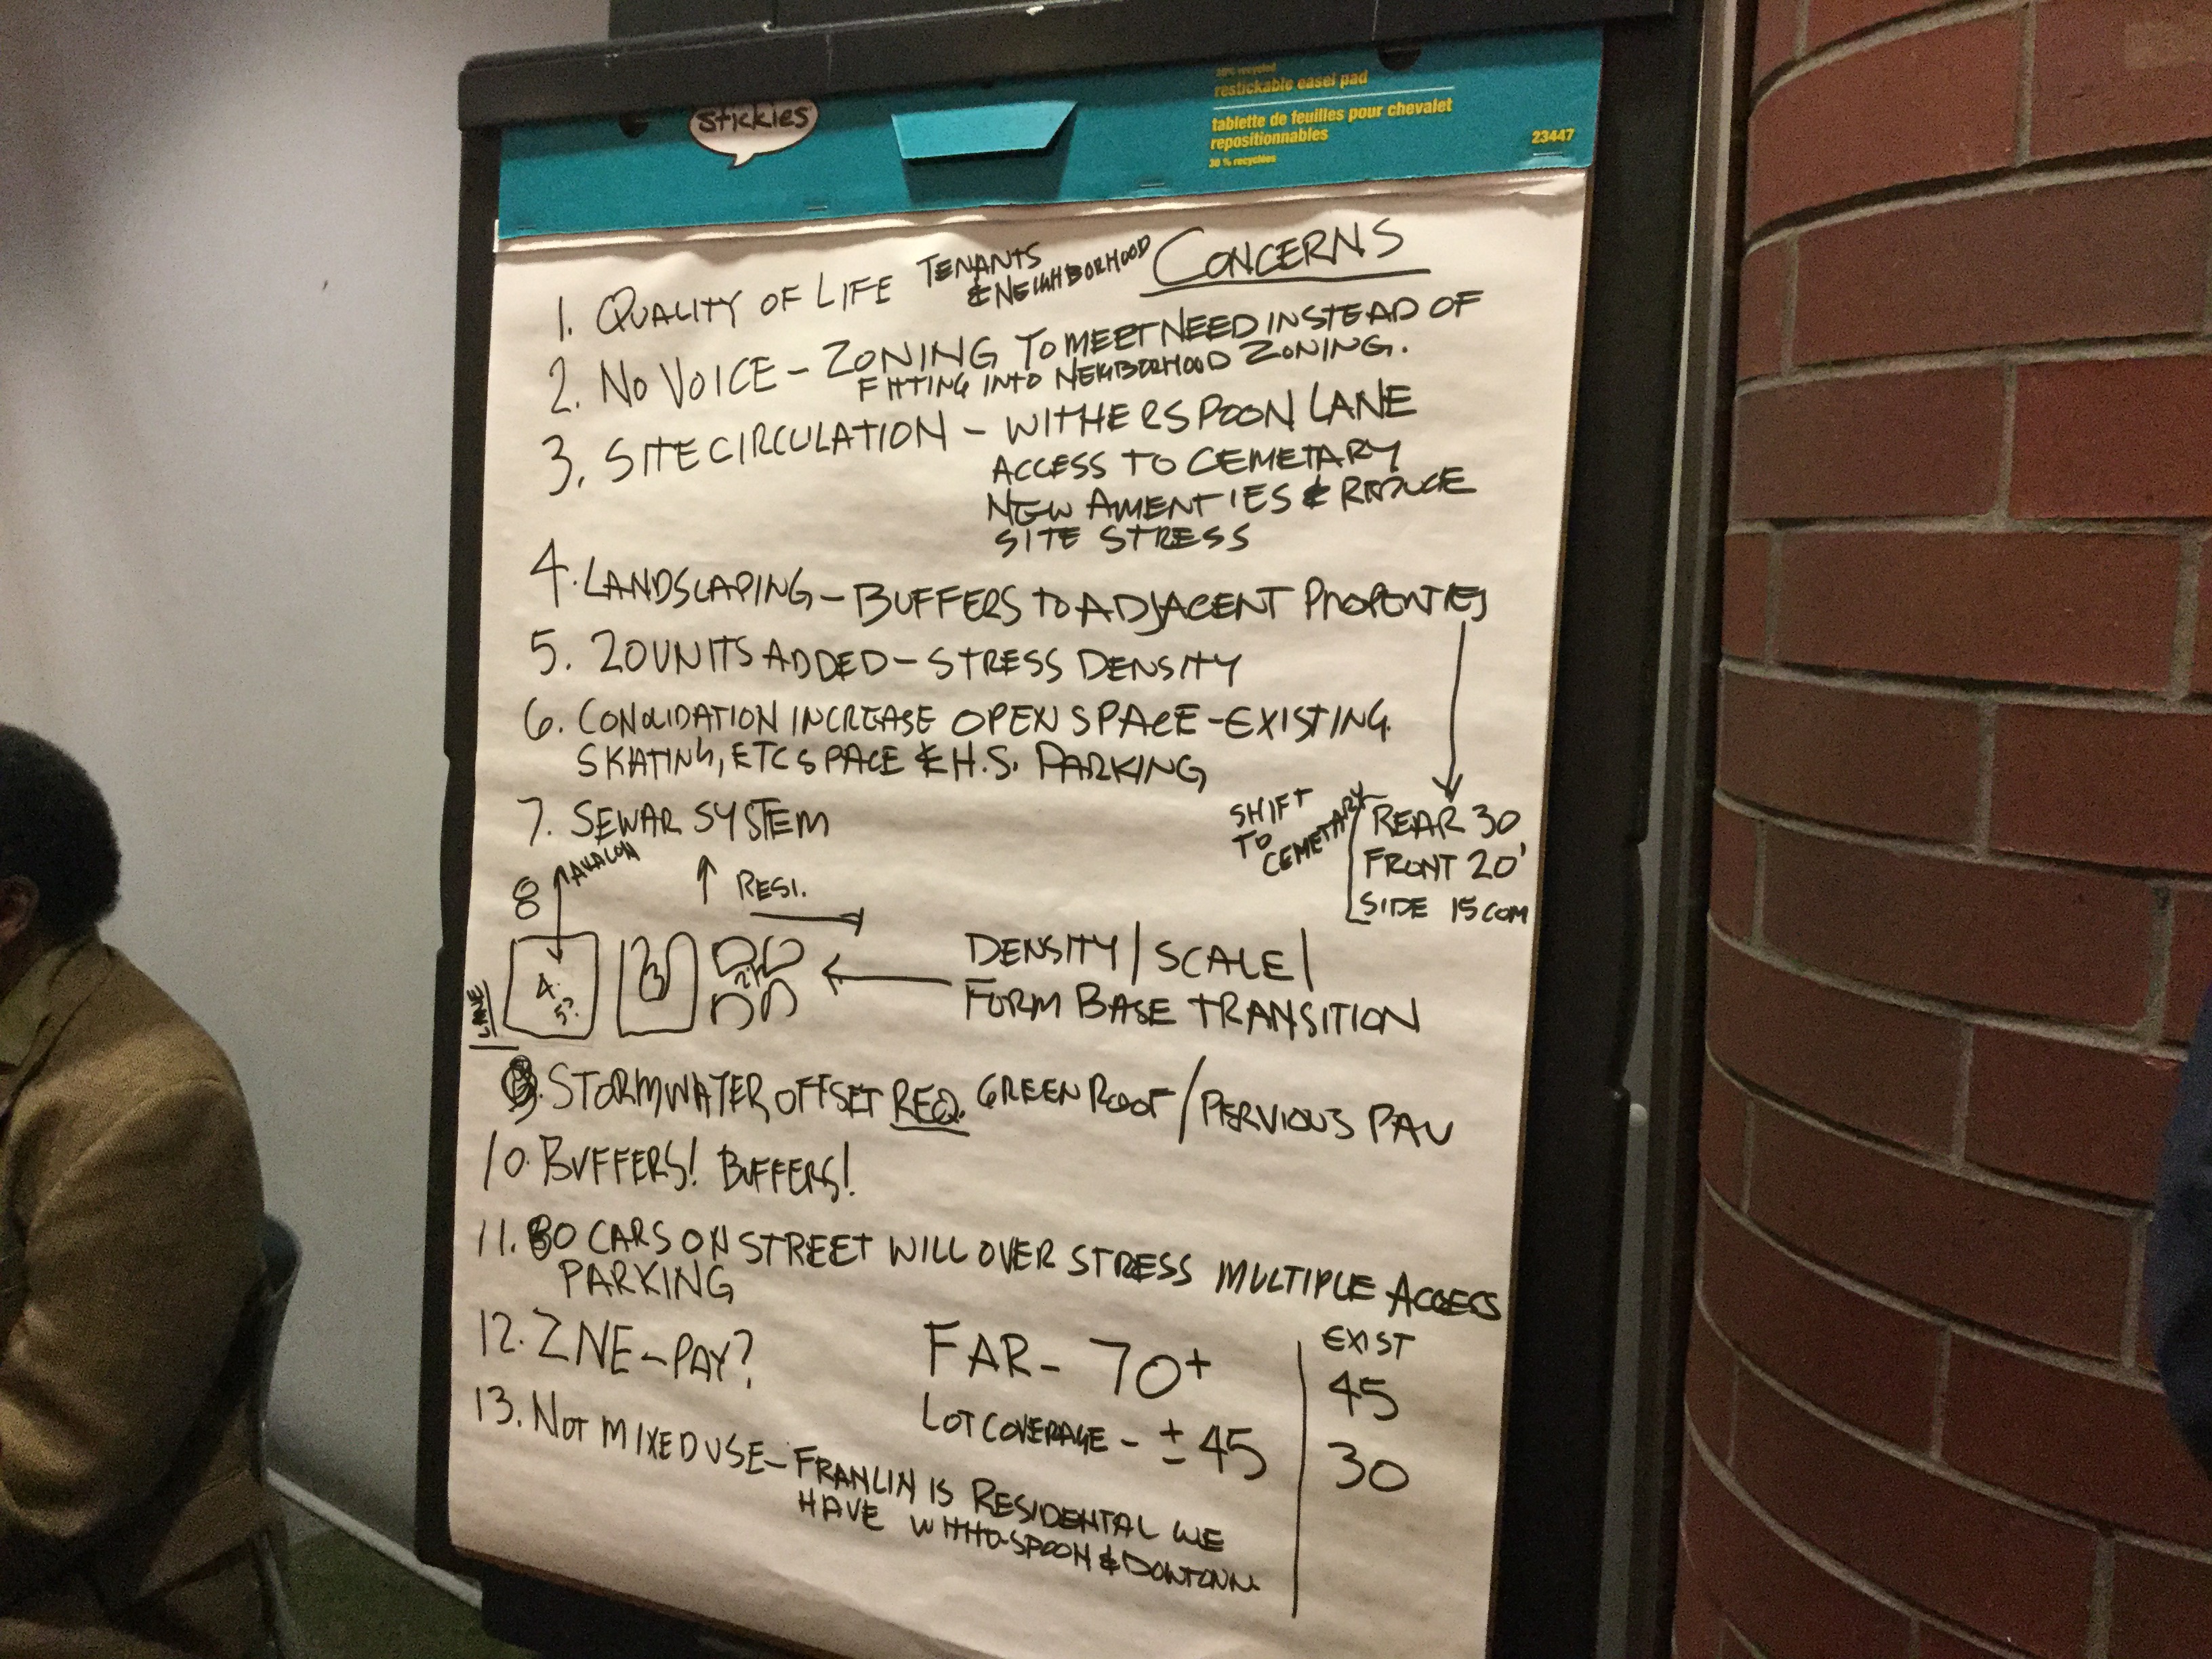 stickies
30% recycled
restickable easel pad
tablette de feuilles pour chevalet
repositionnables
30 % recyclées
23447
CONCERNS
1. QUALITY OF LIFE TENANTS
& NEIGHBORHOOD
2. NO VOICE - ZONING TO MEET NEED INSTEAD OF
FITTING INTO NEIGHBORHOOD ZONING.
3. SITE CIRCULATION - WITHERSPOON LANE
ACCESS TO CEMETARY
NEW AMENTIES & REDUCE
SITE STRESS
4. LANDSCAPING - BUFFERS TO ADJACENT PROPERTIES
5. 20 UNITS ADDED - STRESS DENSITY
6. CONOLIDATION INCREASE OPEN SPACE - EXISTING
SKATING, ETC SPACE & H.S. PARKING
7. SEWAR SYSTEM
SHIFT
TO
CEMETARY
REAR 30
FRONT 20'
SIDE 15 COM
8 AVALON
RESI.
LANE
4.
5?
3
2 1/2
DENSITY / SCALE /
FORM BASE TRANSITION
9. STORMWATER OFFSET REQ. GREEN ROOF / PERVIOUS PAV
10. BUFFERS! BUFFERS!
11. 80 CARS ON STREET WILL OVER STRESS MULTIPLE ACCESS
PARKING
12. ZNE - PAY?
FAR - 70+
EXIST
45
LOT COVERAGE - ± 45
30
13. NOT MIXED USE - FRANLIN IS RESIDENTAL WE
HAVE